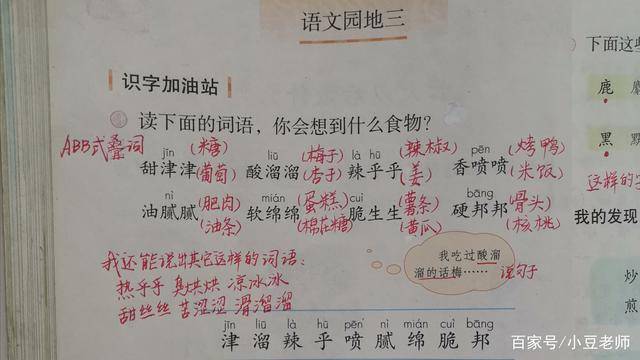 语文园地三
识字加油站
读下面的词语,你会想到什么食物?
ABB式叠词
jīn (糖) liū (梅子) là hū (辣椒) pēn (烤鸭)
甜津津(葡萄) 酸溜溜(杏子) 辣乎乎(姜) 香喷喷(米饭)
nì (肥肉) mián (蛋糕) cuì (薯条) bāng (骨头)
油腻腻(油条) 软绵绵(棉花糖) 脆生生(黄瓜) 硬邦邦(核桃)
我还能说出其它这样的词语:
热乎乎 臭烘烘 凉冰冰
甜丝丝 苦涩涩 滑溜溜
我吃过酸溜
溜的话梅…… 说句子
jīn liū là hū pēn nì mián cuì bāng
津 溜 辣 乎 喷 腻 绵 脆 邦
下面这些
鹿
黑
这样的
我的发现
炒
煎
百家号/小豆老师